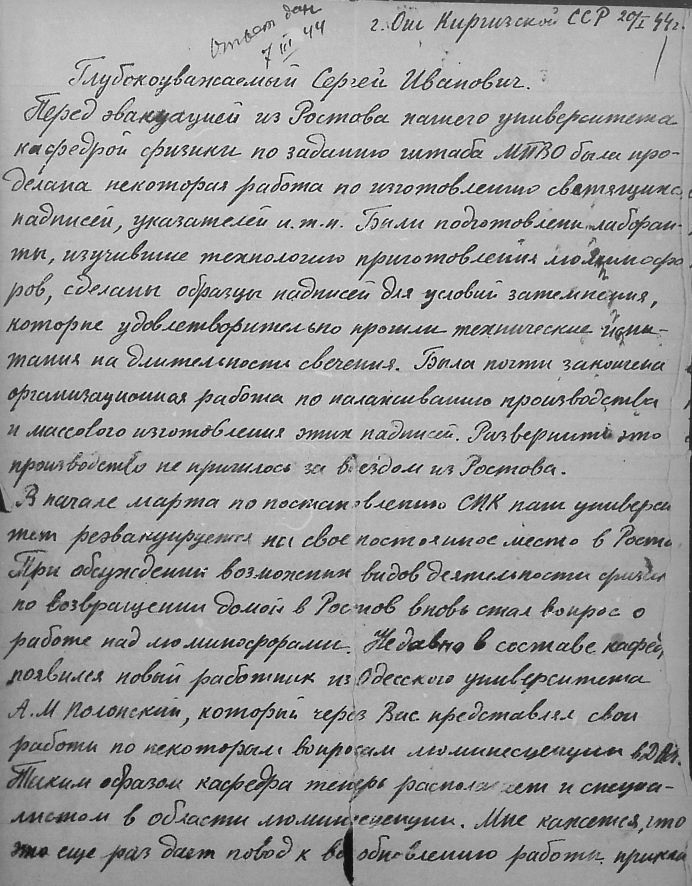 Ответ дан
7/III 44
г. Ош Киргизской ССР 20/I 44 г.
Глубокоуважаемый Сергей Иванович.
Перед эвакуацией из Ростова нашего университета
кафедрой физики по заданию штаба МПВО была про-
делана некоторая работа по изготовлению светящихся
надписей, указателей и.т.п. Были подготовлены лаборан-
ты, изучившие технологию приготовления люминофо
ров, сделаны образцы надписей для условий затемнения,
которые удовлетворительно прошли технические испы-
тания на длительность свечения. Была почти закончена
организационная работа по налаживанию производства
и массового изготовления этих надписей. Развернить это
производство не пришлось за в ездом из Ростова.
В начале марта по постановлению СНК наш универси
тет реэвакуируется на свое постоянное место в Росто
При обсуждении возможных видов деятельности физик
по возвращении домой в Ростов вновь стал вопрос о
работе над люминофорами. Недавно в составе кафед
появился новый работник из Одесского университета
А.М Полонский, который через Вас представлял свои
работы по некоторым вопросам люминесценции в ДАН.
Таким образом кафедра теперь располагает и специа-
листом в области люминесценции. Мне кажется, что
это еще раз дает повод к возобновлению работы